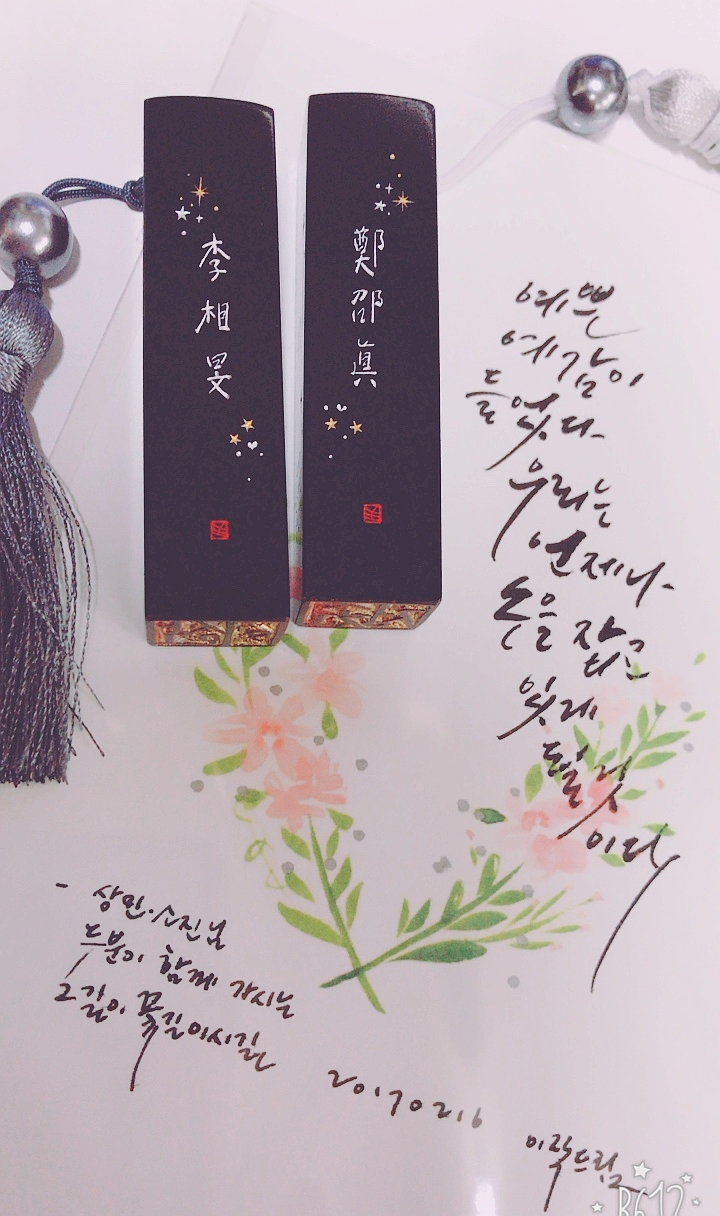 李相旻
鄭邵眞
예쁜
예감이
들었다.
우리는
언제나
손을 잡고
있게
될 것
이다
- 상민·소진님
두분이 함께 가시는
그길이 꽃길이시길
20170216
이락드림
B612